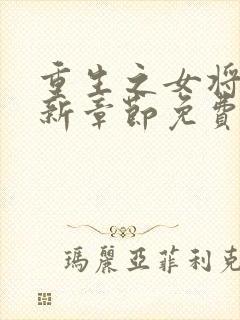 重生之女将
新章節免費
瑪麗亞菲利克